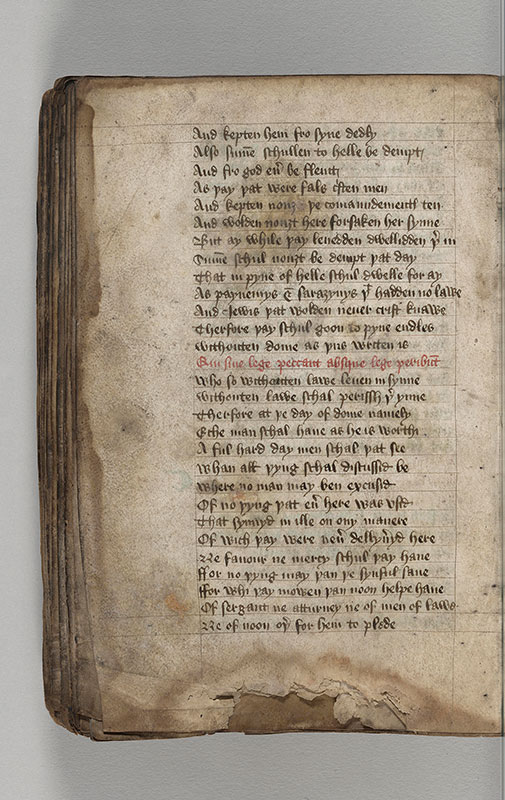 And kepten hem fro syne dedly
Also sūme schullen to helle be dempt
And fro god eū be flemt
As þay þat were fals c̄sten men
And kepten nouȝt þe comaundementȝ ten
And wolden nouȝt here forsaken her synne
But ay while þay leueden dwelliden þ̄ in
Sūme schul nouȝt be dempt þat day
That in pyne of helle schul dwelle for ay
As paynemys & sarazynys þ̄ hadden no lawe
And Jewis þat wolden neuer crist knawe
Therfore þay schul goon to pyne endles
withouten dome as þus writen is
Qui sine lege peccant absque lege peribūt
Who so withouten lawe leuen in synne
withouten lawe schal perissch þ̄ ynne
Therfore at þe day of dome namely
Eche man schal haue as he is worthi
A ful hard day men schal þat see
Whan all þyng schal discussid be
Where no man may ben excusid
Of no þyng þat eū here was vsid
That synnyd in ille on ony manere
Of wich þay were neū delyūyd here
Ne fauour ne mercy schul þay haue
ffor no þyng may þan þe synful saue
ffor whi þay mowen þan noon helpe haue
Of sergant ne atturney ne of men of lawe
Ne of noon oþ̄ for hem to plede